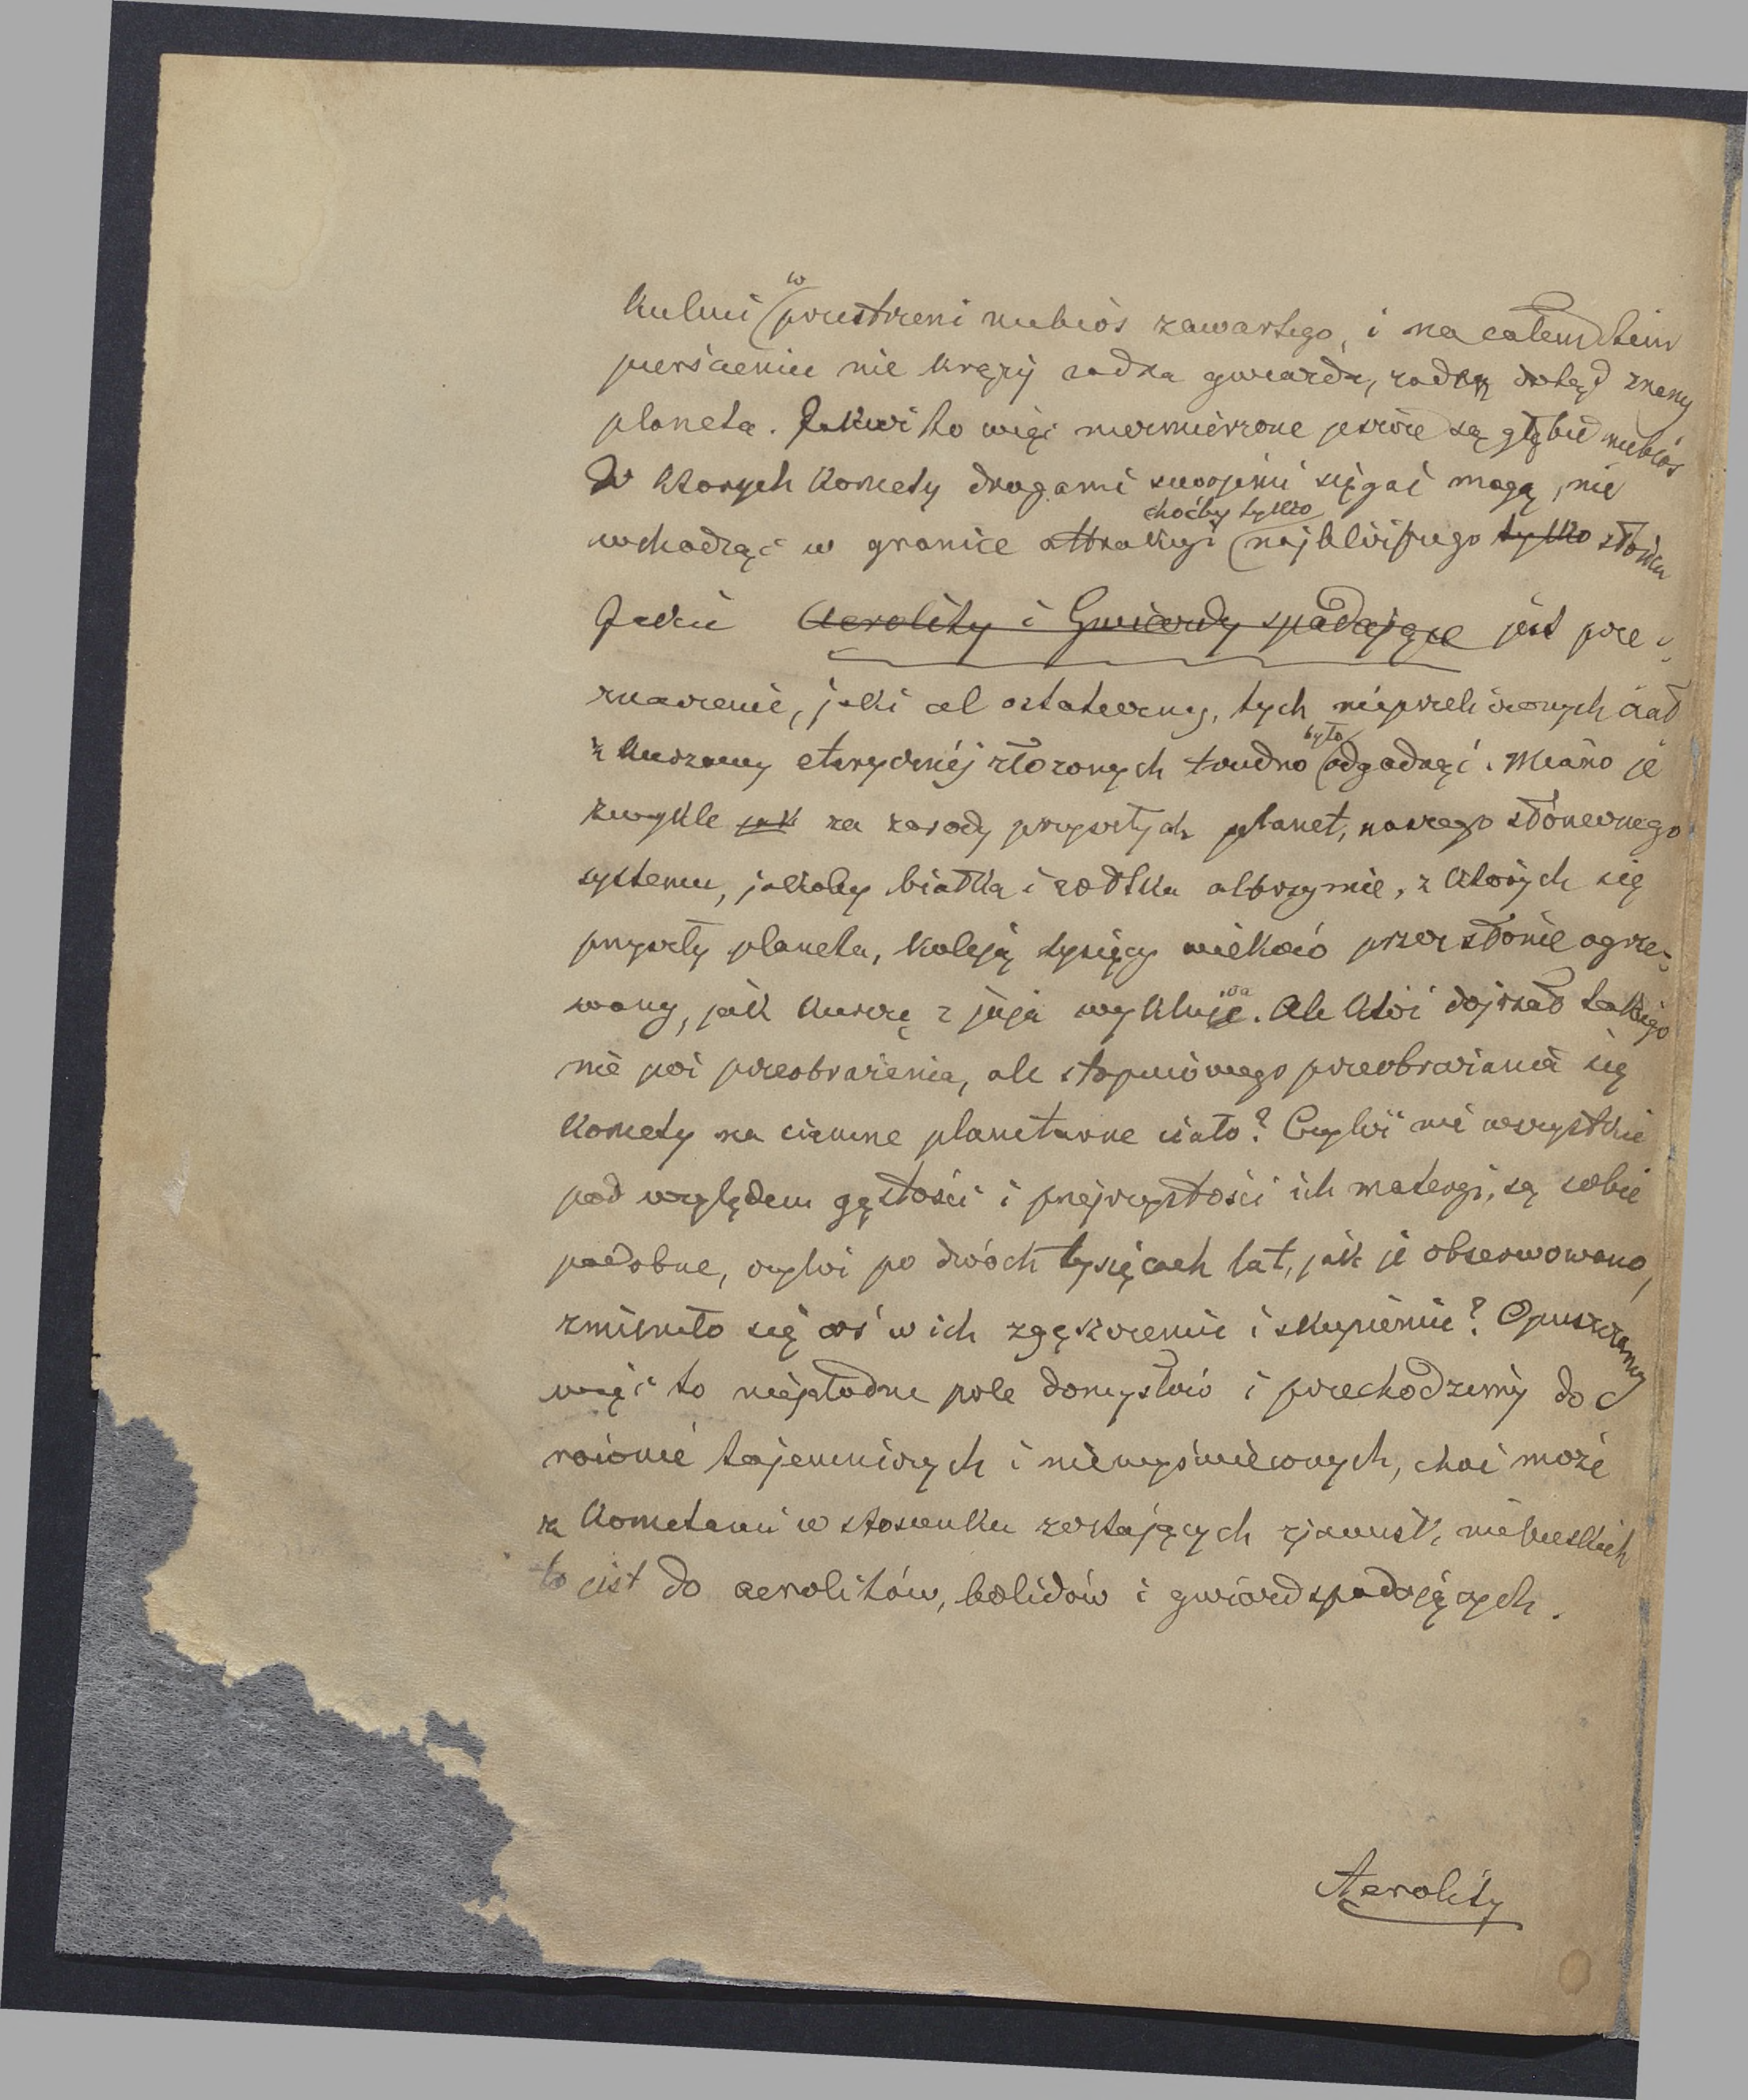 w
kulmi przestrzeni niebios zawartego, i na całem tem
pierścieniu nie krąży żadna gwiazda, żadny dotąd znany
planeta. Jakież to więc niezmierzone jeszcze są głębie niebios
W których komety drogami swojemi sięgać mogą, nie
choćby tylko
wchodząc w granice attrakcyi najbliższego tylko słońca
Jakie Aerolity i Gwiazdy spadające jest prze-
znaczenie, jaki cel ostateczny, tych nieprzeliczonych ciał
było
z kurzawy eterycznéj złożonych trudno odgadnąć. Miano je
zwykle jak za zarody przyszłych planet, naszego słonecznego
systemu, jakoby białka i żółtka olbrzymie, z których się
przyszły planeta, koleją tysięcy wieków przez słońce ogrze-
wany, jak kurczę z jaja wykluje. Ale któż dojrzał takiego
nie już przeobrażenia, ale stopniowego przeobrażania się
komety na ciemne planetarne ciało? Czyliż nie wszystkie
pod względem gęstości i przejrzystości ich materyi, są sobie
podobne, czyliż po dwóch tysiącach lat, jak je obserwowano,
zmieniło się coś w ich zgęszczeniu i skupieniu? Opuszczamy
więc to niepłodne pole domysłów i przechodzimy do
równie tajemniczych i niewyświeconych, choć może
z kometami w stosunku zostających zjawisk niebieskich
to jest do aerolitów, bolidów i gwiazd spadających.
Aerolity